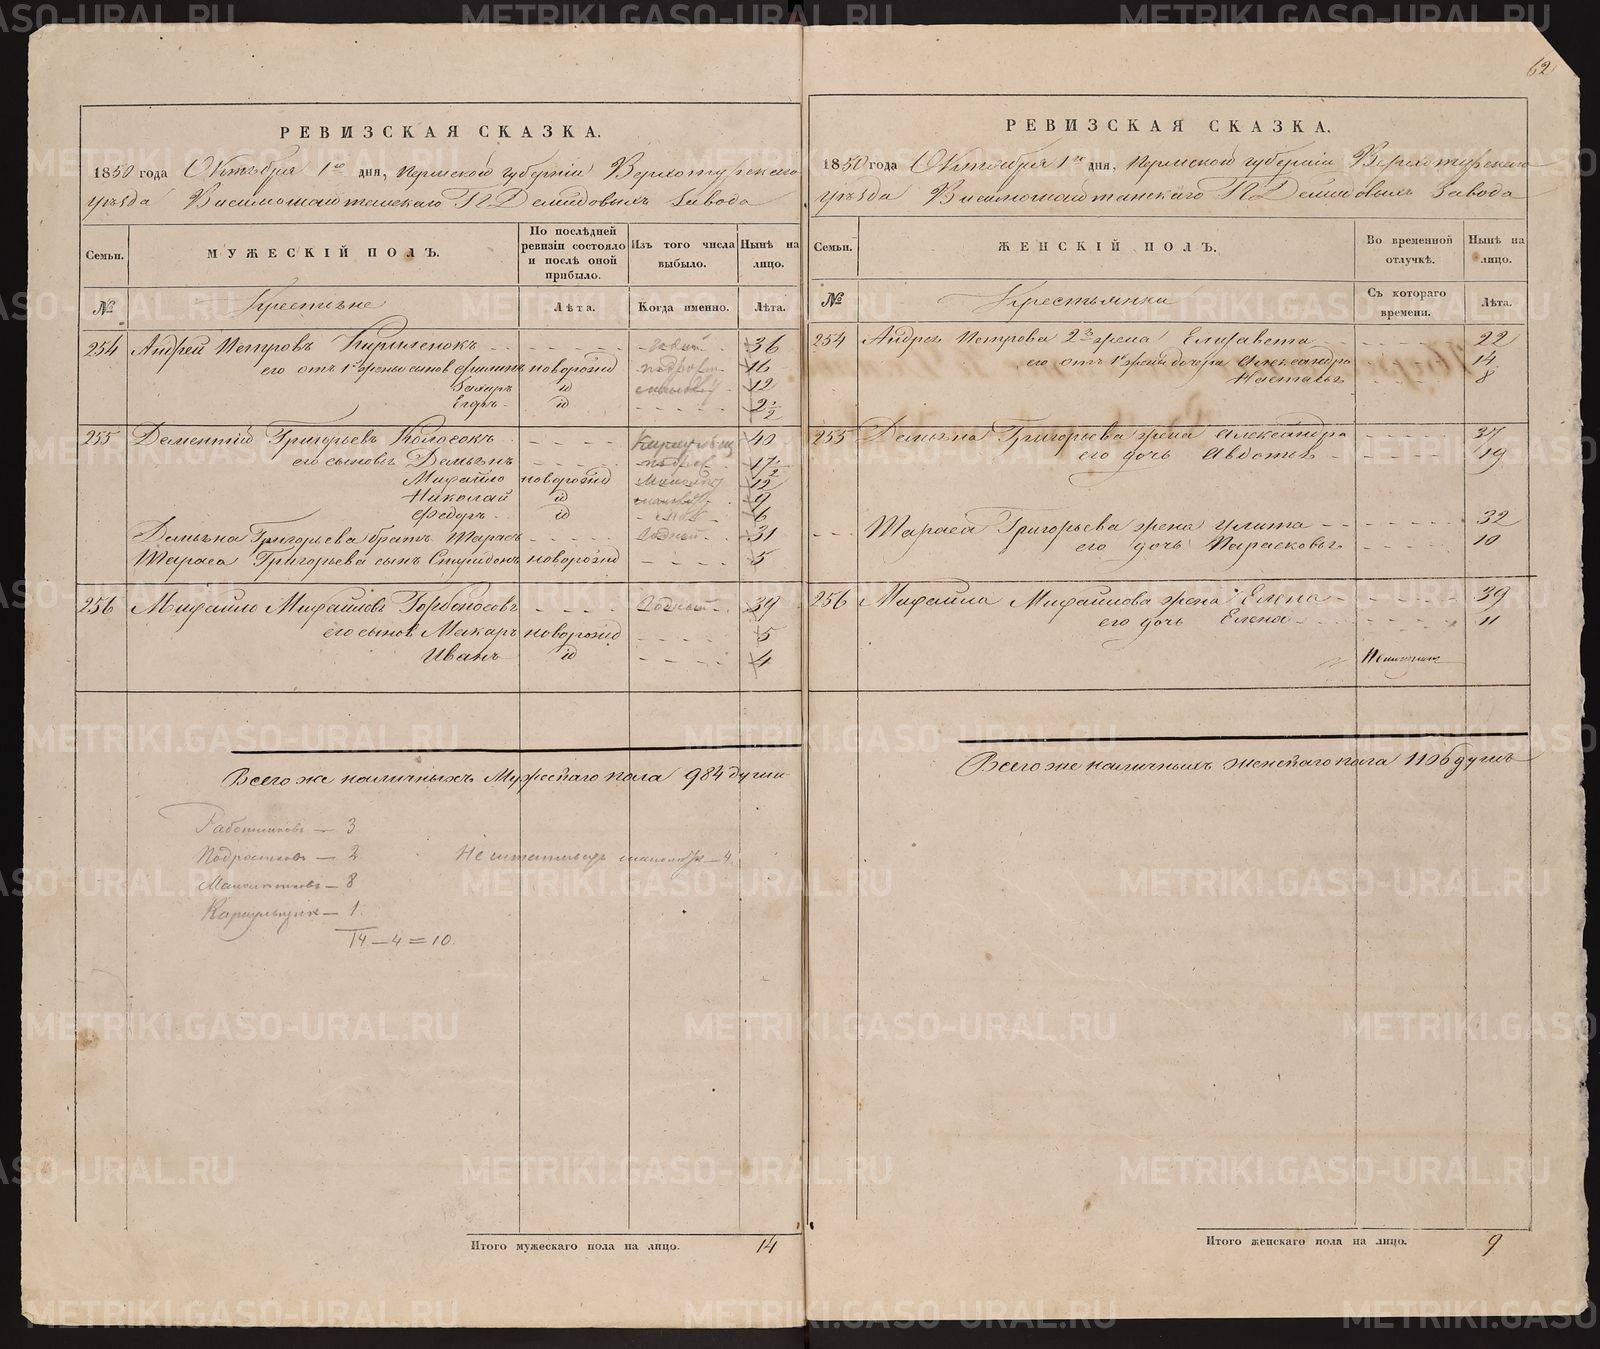 62
РЕВИЗСКАЯ СКАЗКА.
1850 года Октября 1го дня, Пермской губерніи Верхотурскаго
уѣзда Висимошайтанскаго П Демидовыхъ завода
Семьи.
МУЖЕСКІЙ ПОЛЪ.
По послѣдней ревизіи состояло и послѣ оной прибыло.
Изъ того числа выбыло.
Нынѣ на лицо.
№
Крестьяне
Лѣта.
Когда именно.
Лѣта.
254 Андрей Петровъ Кириленокъ - - - - годный - 36
его отъ 1й жены сынов Филипъ новорожд 16
Захаръ id 12
Егоръ id - - - - 2 1/2
255 Дементій Григорьевъ Колосокъ - - - - 40
его сыновья Демьянъ - - - - 17
Михайло новорожд 12 1/2
Николай id 9
Федоръ id 6
Демьяна Григорьева братъ Тарасъ - - - - годный - 31
Тараса Григорьева сынъ новорожд - - - - 5
256 Михайло Михайловъ Горбоносовъ - - - - годный - 39
его сынов Макаръ новорожд - - - - 5
Иванъ id - - - - 4
Всего же наличныхъ Мужескаго пола 984 души
Работниковъ — 3
Подростковъ — 2
Малолѣтковъ — 8
Караульщик — 1
14 — 4 = 10.
4
Итого мужескаго пола на лицо. 14
РЕВИЗСКАЯ СКАЗКА.
1850 года Октября 1го дня, Пермской губерніи Верхотурскаго
уѣзда Висимошайтанскаго П Демидовыхъ завода
Семьи.
ЖЕНСКІЙ ПОЛЪ.
Во временной отлучкѣ.
Нынѣ на лицо.
№
Крестьянки
Съ котораго времени.
Лѣта.
254 Андрея Петрова 2я жена Елисавета - - - - 22
его отъ 1й жены дочери Александра 14
Настасья 8
255 Демьяна Григорьева жена Александра - - - - 37
его дочь Авдотья - - - - 19
Тараса Григорьева жена Улита - - - - 32
его дочь Парасковья - - - - 10
256 Михайла Михайлова жена Елена - - - - 39
его дочь Елена - - - - 11
Всего же наличныхъ женскаго пола 1106 душъ
Итого женскаго пола на лицо. 9
METRIKI.GASO-URAL.RU